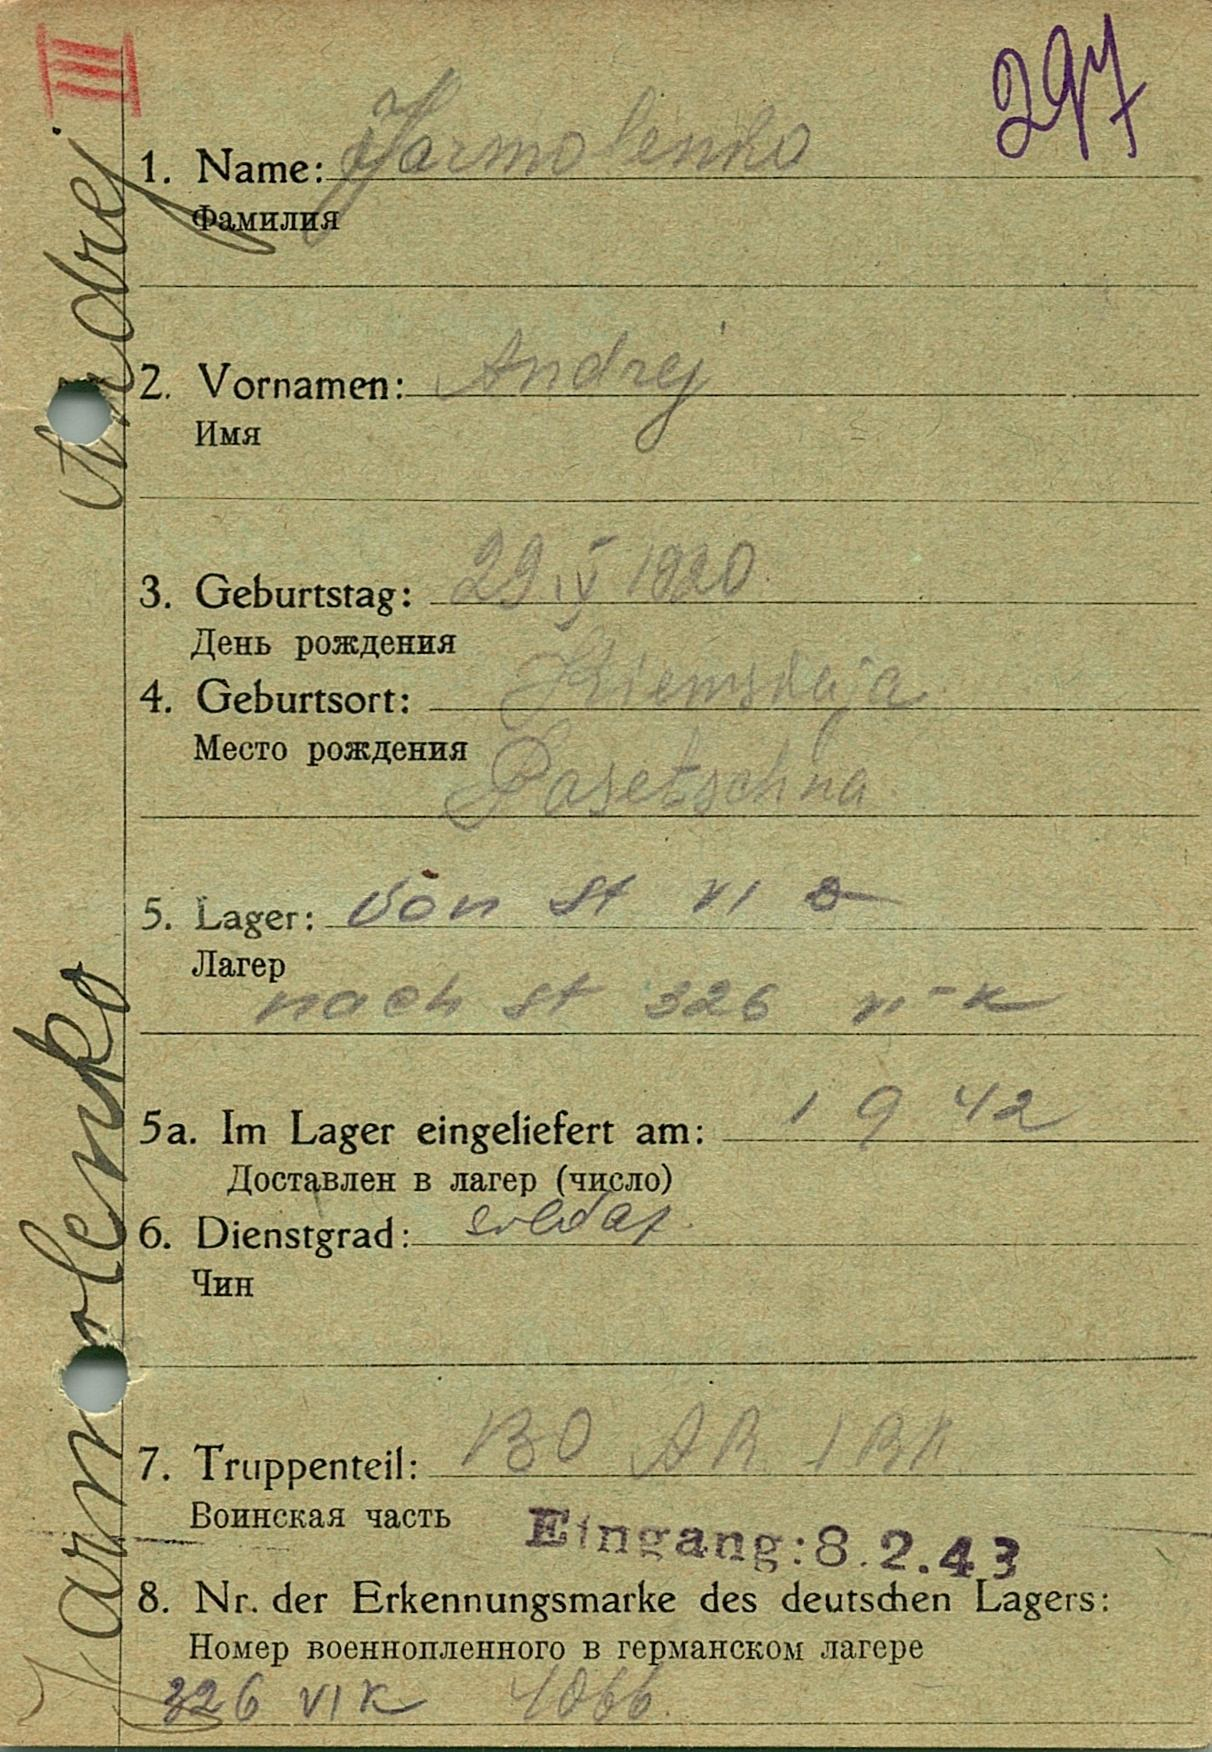 III
297
Jarmolenko Andrej
1. Name: Jarmolenko
Фамилия
2. Vornamen: Andrej
Имя
3. Geburtstag: 29. V 1920.
День рождения
4. Geburtsort:
Место рождения
Pasetschna
5. Lager: von St VI D
Лагер
nach St 326 VI-K
5a. Im Lager eingeliefert am: 1 9 42
Доставлен в лагер (число)
6. Dienstgrad: soldat.
Чин
7. Truppenteil:
Воинская часть
Eingang: 8.2.43
8. Nr. der Erkennungsmarke des deutschen Lagers:
Номер военнопленного в германском лагере
326 VI K 4066.